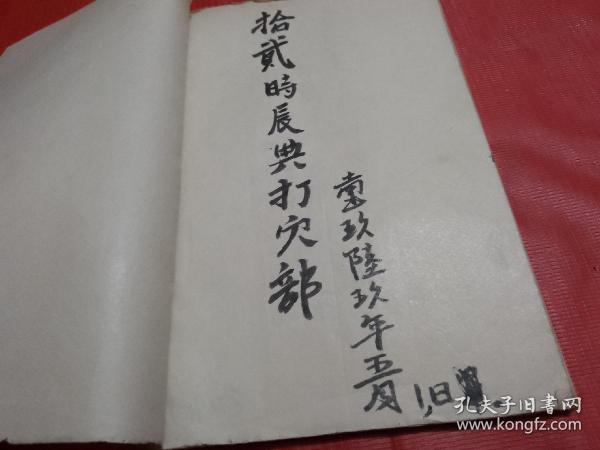 拾貳時辰典打穴部
壹玖陸玖年五月
1,日
孔夫子旧书网
www.kongfz.com